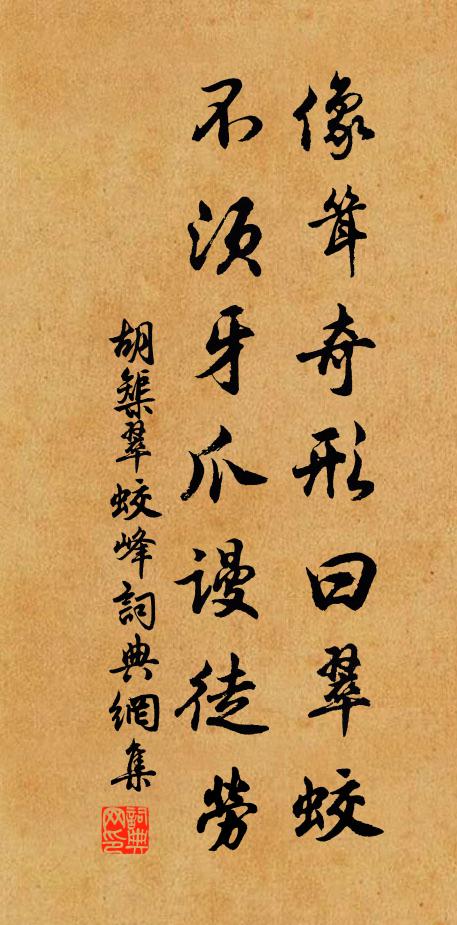 像聳奇形曰翠蛟
不須牙爪謾徒勞
胡榘翠蛟峰詞典網集
詞典网印